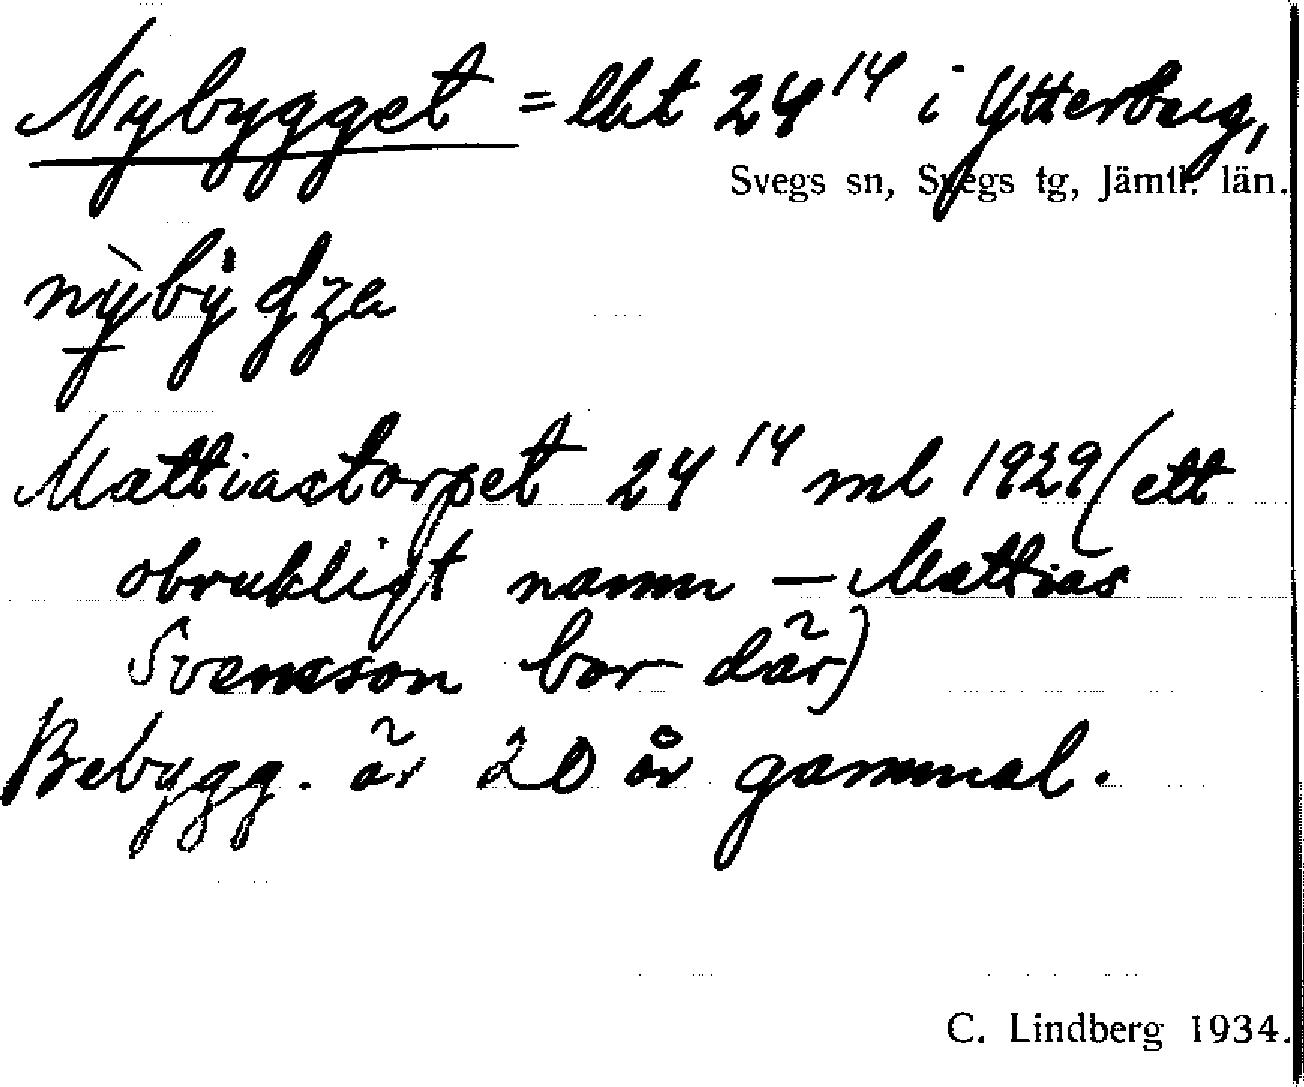 Nybygget = lht 24¹⁴ i Ytterberg,
Svegs sn, Svegs tg, Jämtl. län.
Mattiastorpet 24¹⁴ ml 1929 (ett
obrukligt namn — Mattias
Svensson bor där)
Bebygg. är 20 år gammal.
C. Lindberg 1934.